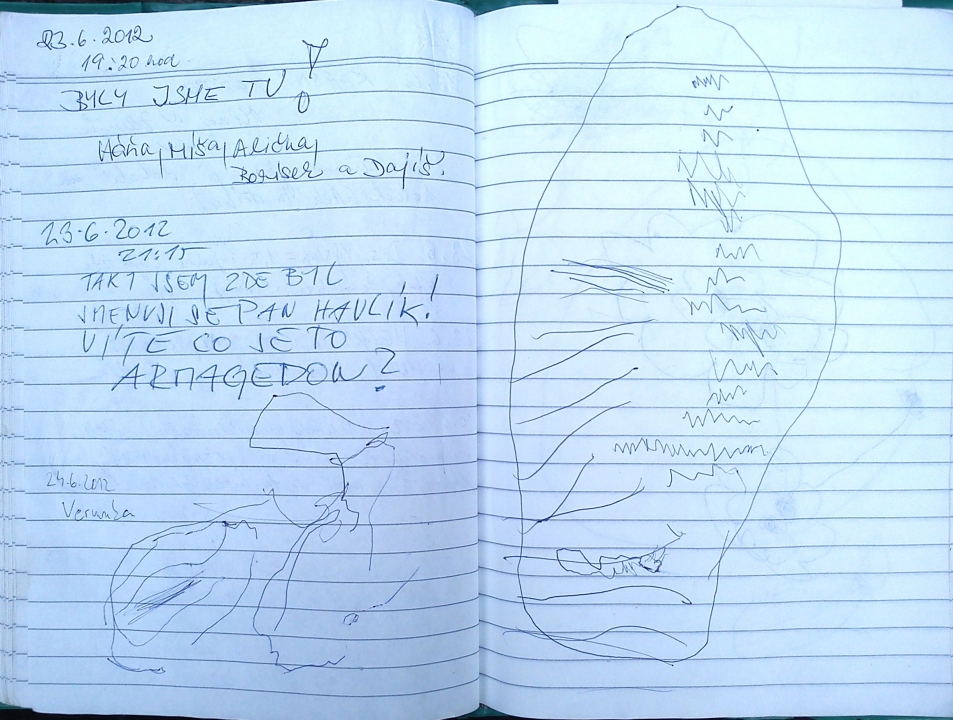 23.6.2012
19:20 hod
BYLY JSME TU!
Háňa, Míša, Alička,
Borisek a Dajíš.
23.6.2012
21:15
TAKY JSEM ZDE BYL
JMENUJI SE PAN HAVLÍK!
VÍTE CO JE TO
ARMAGEDON?
24.6.2012
Verunka